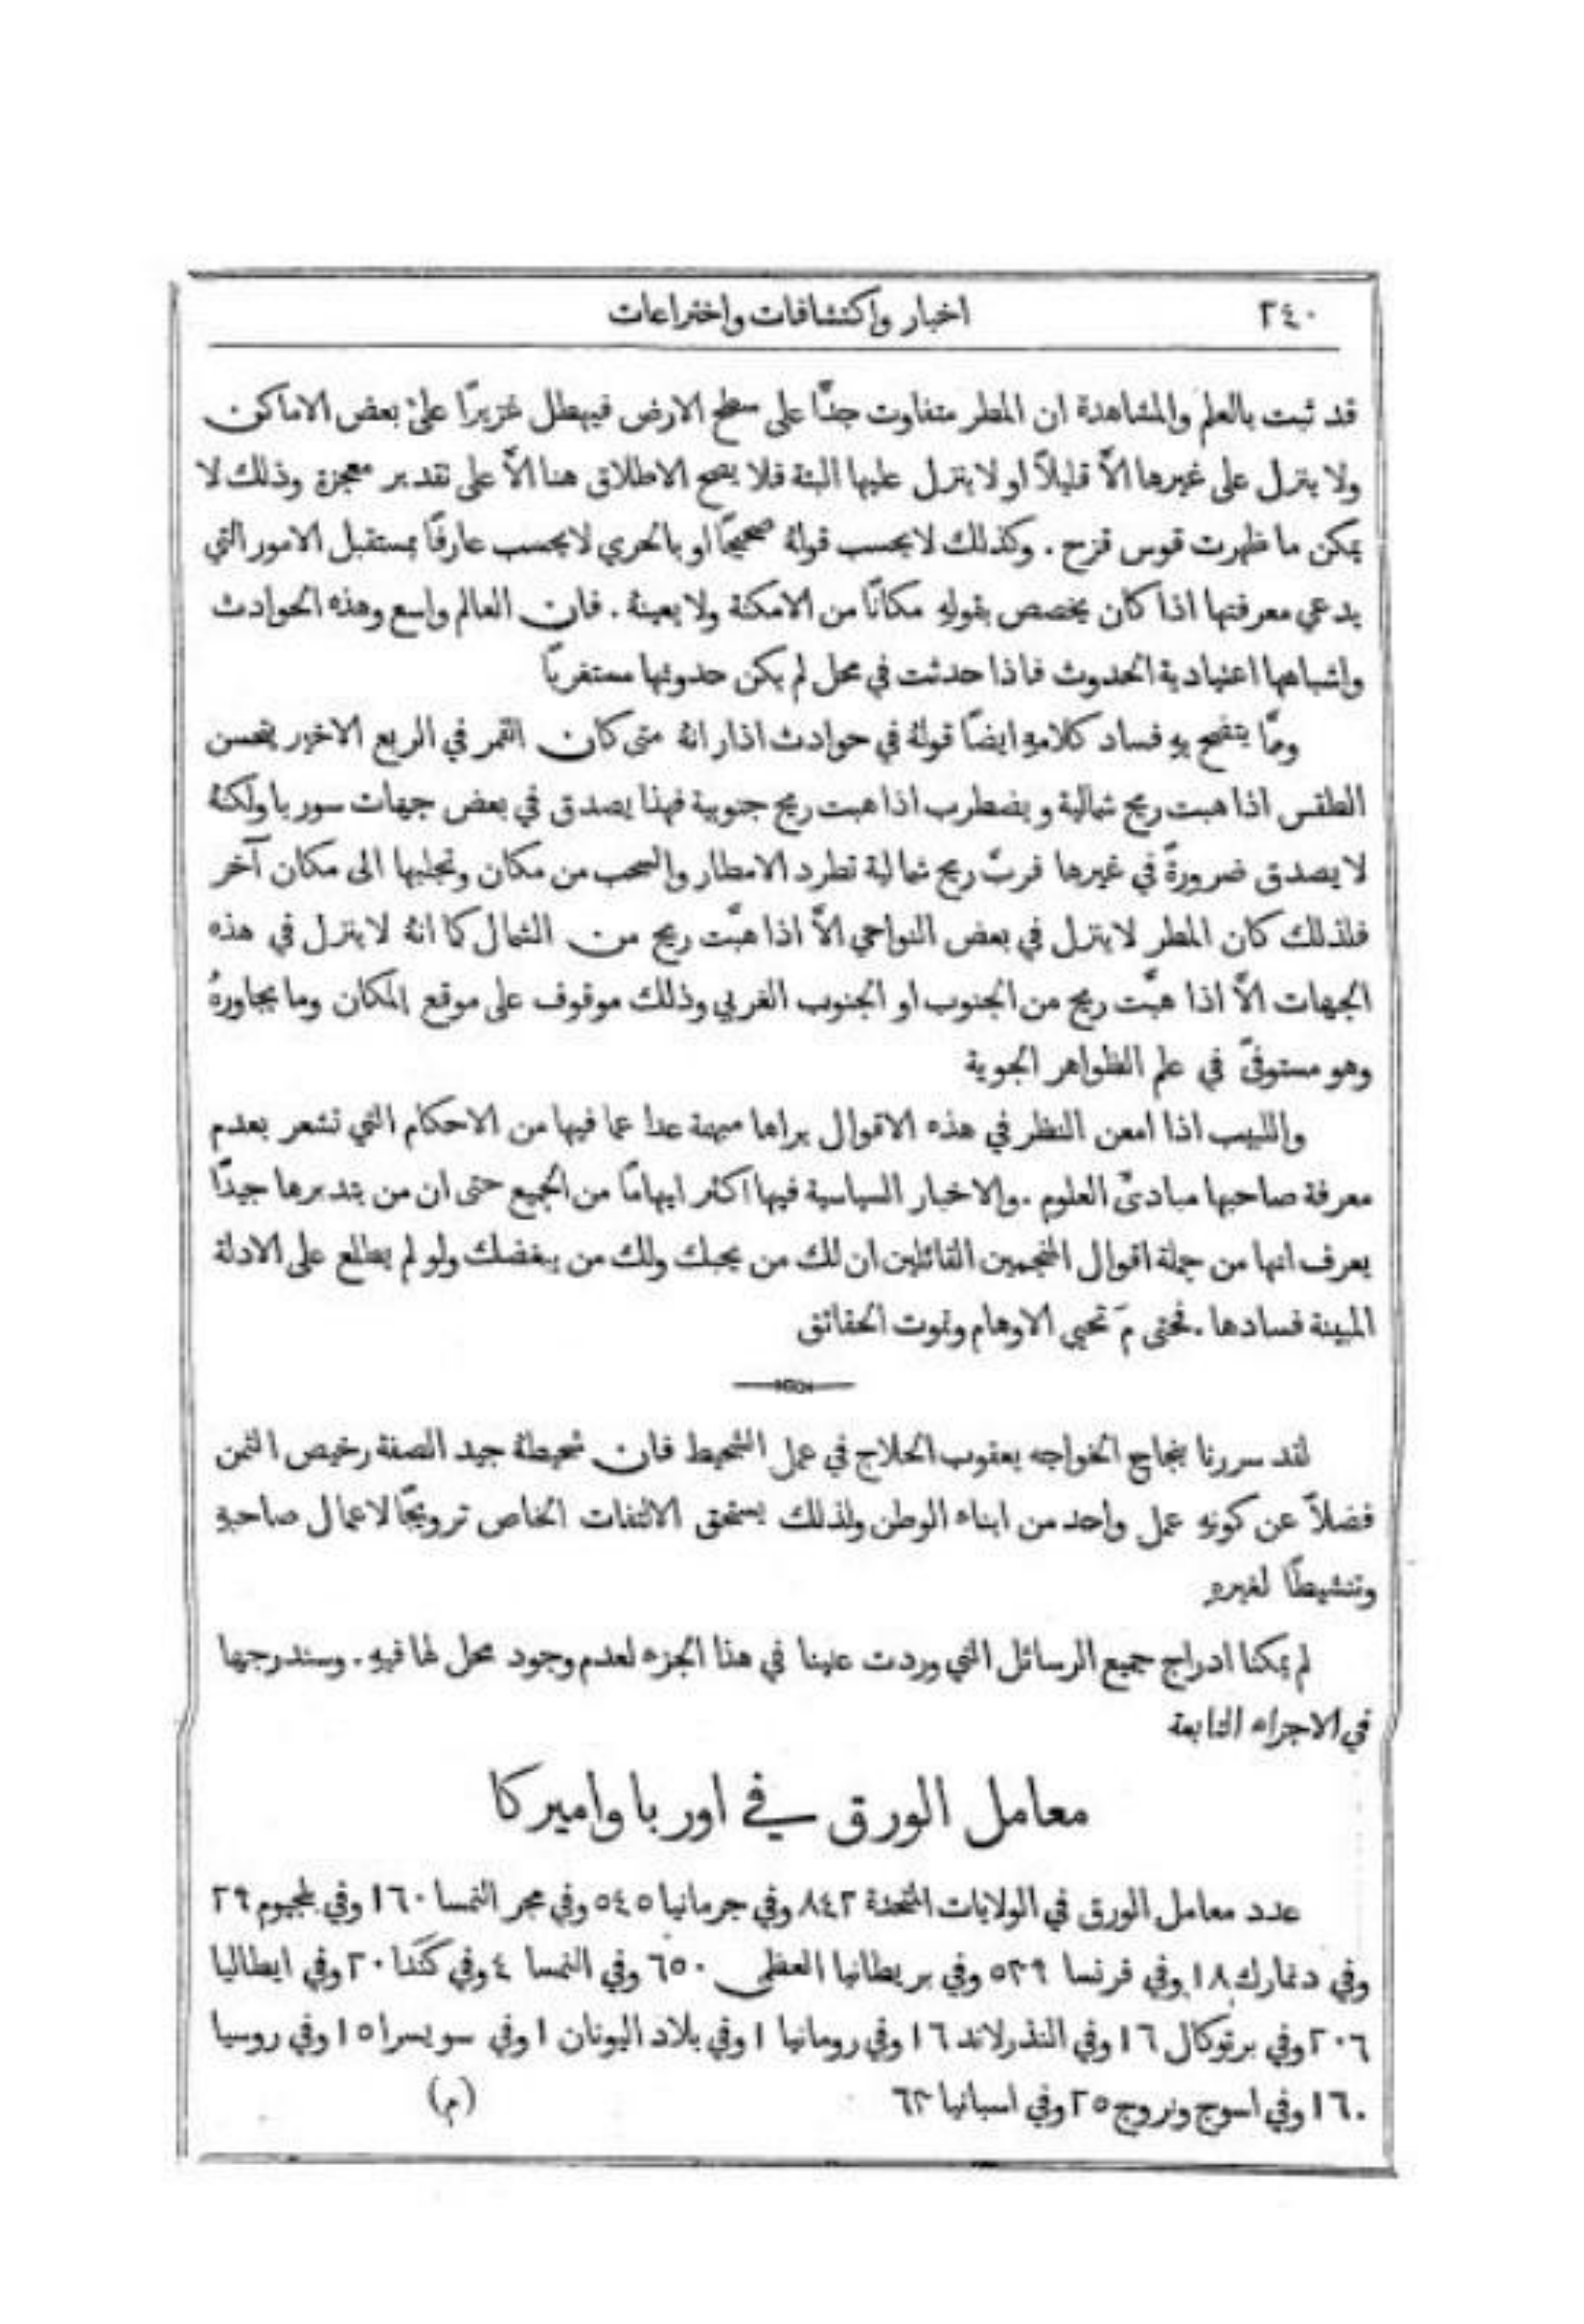 ٢٤٠
اخبار واكتشافات واختراعات
قد ثبت بالعلم والمشاهدة ان المطر متفاوت جدًّا على سطح الارض فيهطل غزيرًا على بعض الاماكن
ولا ينزل على غيرها الاَّ قليلاً او لا ينزل عليها البتة فلا يصح الاطلاق هنا الاَّ على تقدير معجزة وذلك لا
يمكن ما ظهرت قوس قزح . وكذلك لا يحسب قولهُ صحيحًا او بالحري لا يحسب عارفًا بمستقبل الامور التي
يدعي معرفتها اذا كان يخصص بقولهِ مكانًا من الامكنة ولا يعينهُ . فان العالم واسع وهذه الحوادث
واشباهها اعتيادية الحدوث فاذا حدثت في محل لم يكن حدوثها مستغربًا
ومَّا يتضح بهِ فساد كلامهِ ايضًا قولهُ في حوادث اذار انهُ متى كان القمر في الربع الاخير يتحسن
الطقس اذا هبت ريح شمالية ويضطرب اذا هبت ريح جنوبية فهذا يصدق في بعض جهات سوريا ولكنهُ
لا يصدق ضرورةً في غيرها فربَّ ريح شمالية تطرد الامطار والسحب من مكان وتجلبها الى مكان آخر
فلذلك كان المطر لا ينزل في بعض النواحي الاَّ اذا هبَّت ريح من الشمال كما انهُ لا ينزل في هذه
الجهات الاَّ اذا هبَّت ريح من الجنوب او الجنوب الغربي وذلك موقوف على موقع المكان وما يجاورهُ
وهو مستوفىً في علم الظواهر الجوية
واللبيب اذا امعن النظر في هذه الاقوال يراها مبهمة عدا عما فيها من الاحكام التي تشعر بعدم
معرفة صاحبها مبادئَ العلوم . والاخبار السياسية فيها اكثر ايهامًا من الجميع حتى ان من يتدبرها جيدًا
يعرف انها من جملة اقوال المنجمين القائلين ان لك من يحبك ولك من يبغضك ولو لم يطلع على الادلة
المبينة فسادها . فحتى مَ تحيي الاوهام وتموت الحقائق
لقد سررنا بنجاح الخواجه يعقوب الحلاج في عمل الشحيط فان شحيطهُ جيد الصفة رخيص الثمن
فضلاً عن كونهِ عمل واحد من ابناء الوطن ولذلك يستحق الالتفات الخاص ترويجًا لاعمال صاحبهِ
وتنشيطًا لغيرهِ
لم يمكنا ادراج جميع الرسائل التي وردت علينا في هذا الجزء لعدم وجود محل لها فيهِ . وسندرجها
في الاجزاء التابعة
معامل الورق في اوربا واميركا
عدد معامل الورق في الولايات المتحدة ٨٤٢ وفي جرمانيا ٥٤٥ وفي مجر النمسا ١٦٠ وفي بلجيوم ٢٩
وفي دنمارك ١٨ وفي فرنسا ٥٢٩ وفي بريطانيا العظمى ٦٥٠ وفي النمسا ٤ وفي كَنَدا ٢٠ وفي ايطاليا
٢٠٦ وفي برتوكال ١٦ وفي النذرلاند ١٦ وفي رومانيا ١ وفي بلاد اليونان ١ وفي سويسرا ١٥ وفي روسيا
١٦٠ وفي اسوج ونروج ٢٥ وفي اسبانيا ٦٢ (م)